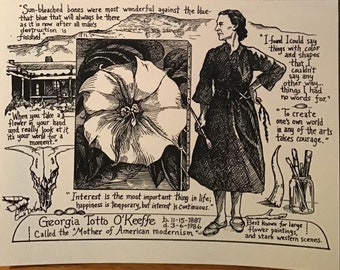 "Sun-bleached bones were most wonderful against the blue-
that blue that will always be there
as it is now after all man's
destruction is
finished."
"I found I could say
things with color
and shapes
that I
couldn't
say any
other way...
things I had
no words for."
"To create
one's own world
in any of the arts
takes courage."
"When you take a
flower in your hand
and really look at it,
it's your world for a
moment."
"Interest is the most important thing in life;
happiness is temporary, but interest is continuous."
Georgia Totto O'Keeffe b. 11-15-1887
d. 3-6-1986
Called the "Mother of American modernism"
Best known for large
flower paintings,
and stark western scenes.